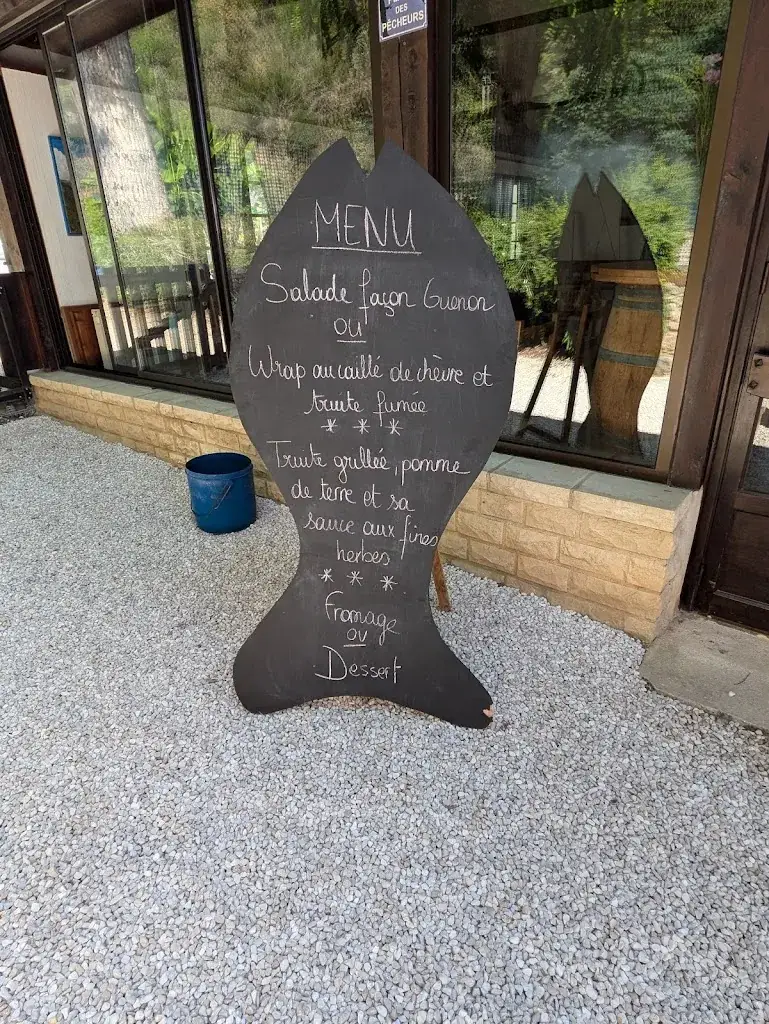 DES
PÊCHEURS
MENU
Salade façon Guenon
ou
Wrap au caillé de chèvre et
truite fumée
* * *
Truite grillée, pomme
de terre et sa
sauce aux fines
herbes
* * *
Fromage
ou
Dessert